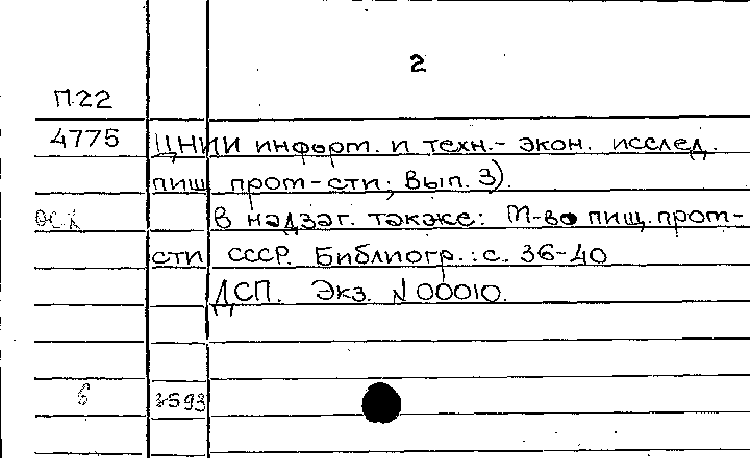 2
П22
4775 ЦНИИ информ. и техн.- экон. исслед.
пищ пром-сти; Вып. 3).
В надзаг. также: М-во пищ. пром-
сти СССР. Библиогр.: с. 36-40
ДСП. Экз. N 00010.